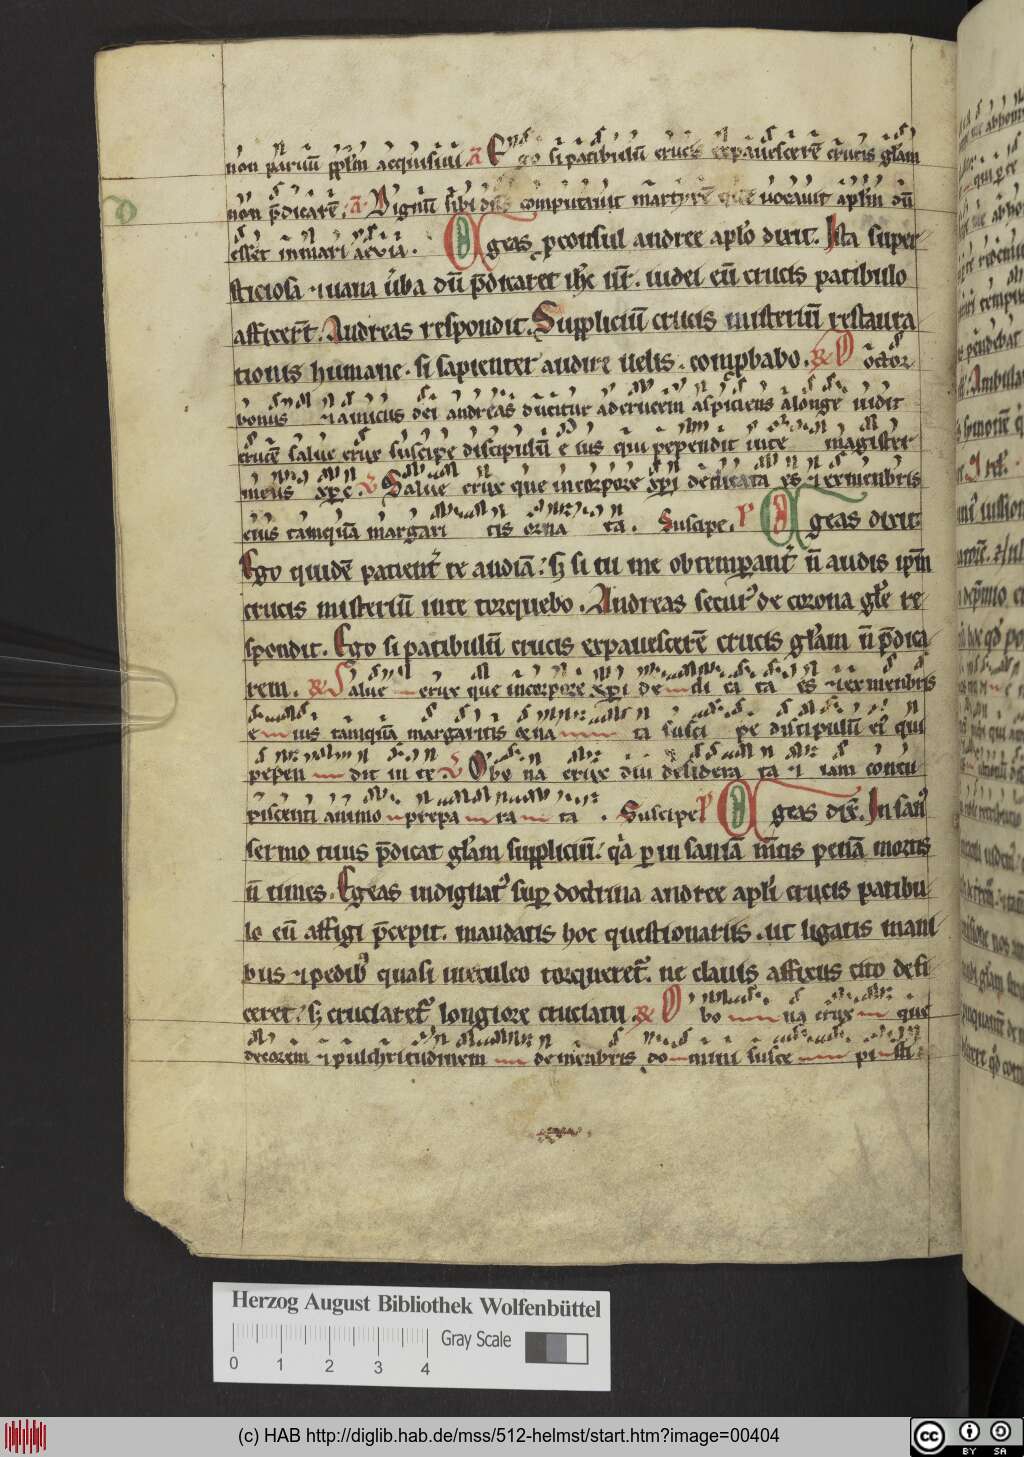 non paruū pplm acquisiui a Ego si patibulū crucis expauescerē crucis glam
non p̄dicarē. a Dignū sibi dn̄s computauit martyrē quē uocauit aplm dū
esset in mari aeuia. Egeas ꝓconsul andree aplo dixit. Ista super
sticiosa ⁊ uana uba dū p̄dicaret ihc ur̄. iudei eū crucis patibulo
affixert. Andreas respondit. Suppliciū crucis misteriū restaura
tionis humane. si sapienter audire uelis. comp̄babo. & Doctor
bonus ⁊ amicus dei andreas ducitur ad crucem aspiciens a longe uidit
crucē salue crux suscipe discipulū eius qui pependit in te magister
meus xpc. V Salue crux que in corpore xpi dedicata es ⁊ ex menbris
eius tamquā margaritis ornata. Suscipe. P Egeas dixit
Ego quidē patient te audiā. sȝ si tu me obtempant n̄ audis ipm̄
crucis misteriū in te torquebo. Andreas secur de corona gle re
spondit. Ego si patibulū crucis expauescerē crucis glam n̄ p̄dica
rem. & Salue crux que in corpore xpi dedicata es ⁊ ex menbris
eius tamquā margaritis ornata suscipe discipulū ei qui
pependit in te V O bona crux diu desiderata ⁊ iam concu
piscenti animo preparata. Suscipe P Egeas dix̄. In san
sermo tuus p̄dicat glam suppliciū. qa ꝑ insaniā mtis penā mortis
n̄ times. Egeas indignat sup doctrina andree apli crucis patibu
lo eū affigi p̄cepit. mandatis hoc questionariis. ut ligatis mani
bus ⁊ pedib quasi in eculeo torqueret. ne clauis affixus cito defi
ceret. sȝ cruciaret longiore cruciatu. & O bona crux que
decorem ⁊ pulchritudinem de menbris domini suscepisti
Herzog August Bibliothek Wolfenbüttel
Gray Scale
0 1 2 3 4
(c) HAB http://diglib.hab.de/mss/512-helmst/start.htm?image=00404
cc BY SA